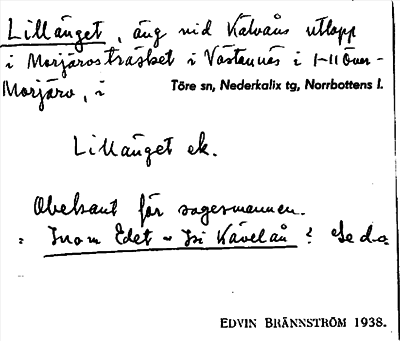 Lillänget, äng vid Kalvåns utlopp
i Morjärosträsket i Västannäs i 1-11 Över-
Morjärv, i Töre sn, Nederkalix tg, Norrbottens l.
Lillänget ek.
Obekant för sagesmannen.
= Inom Edet - Isi Kävelån ? Se d.o.
EDVIN BRÄNNSTRÖM 1938.